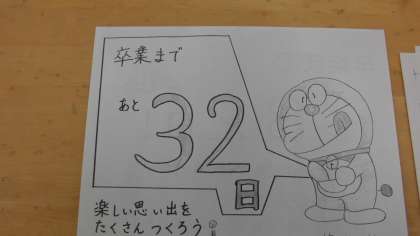 卒業まで
あと
32
日
楽しい思い出を
たくさんつくろう